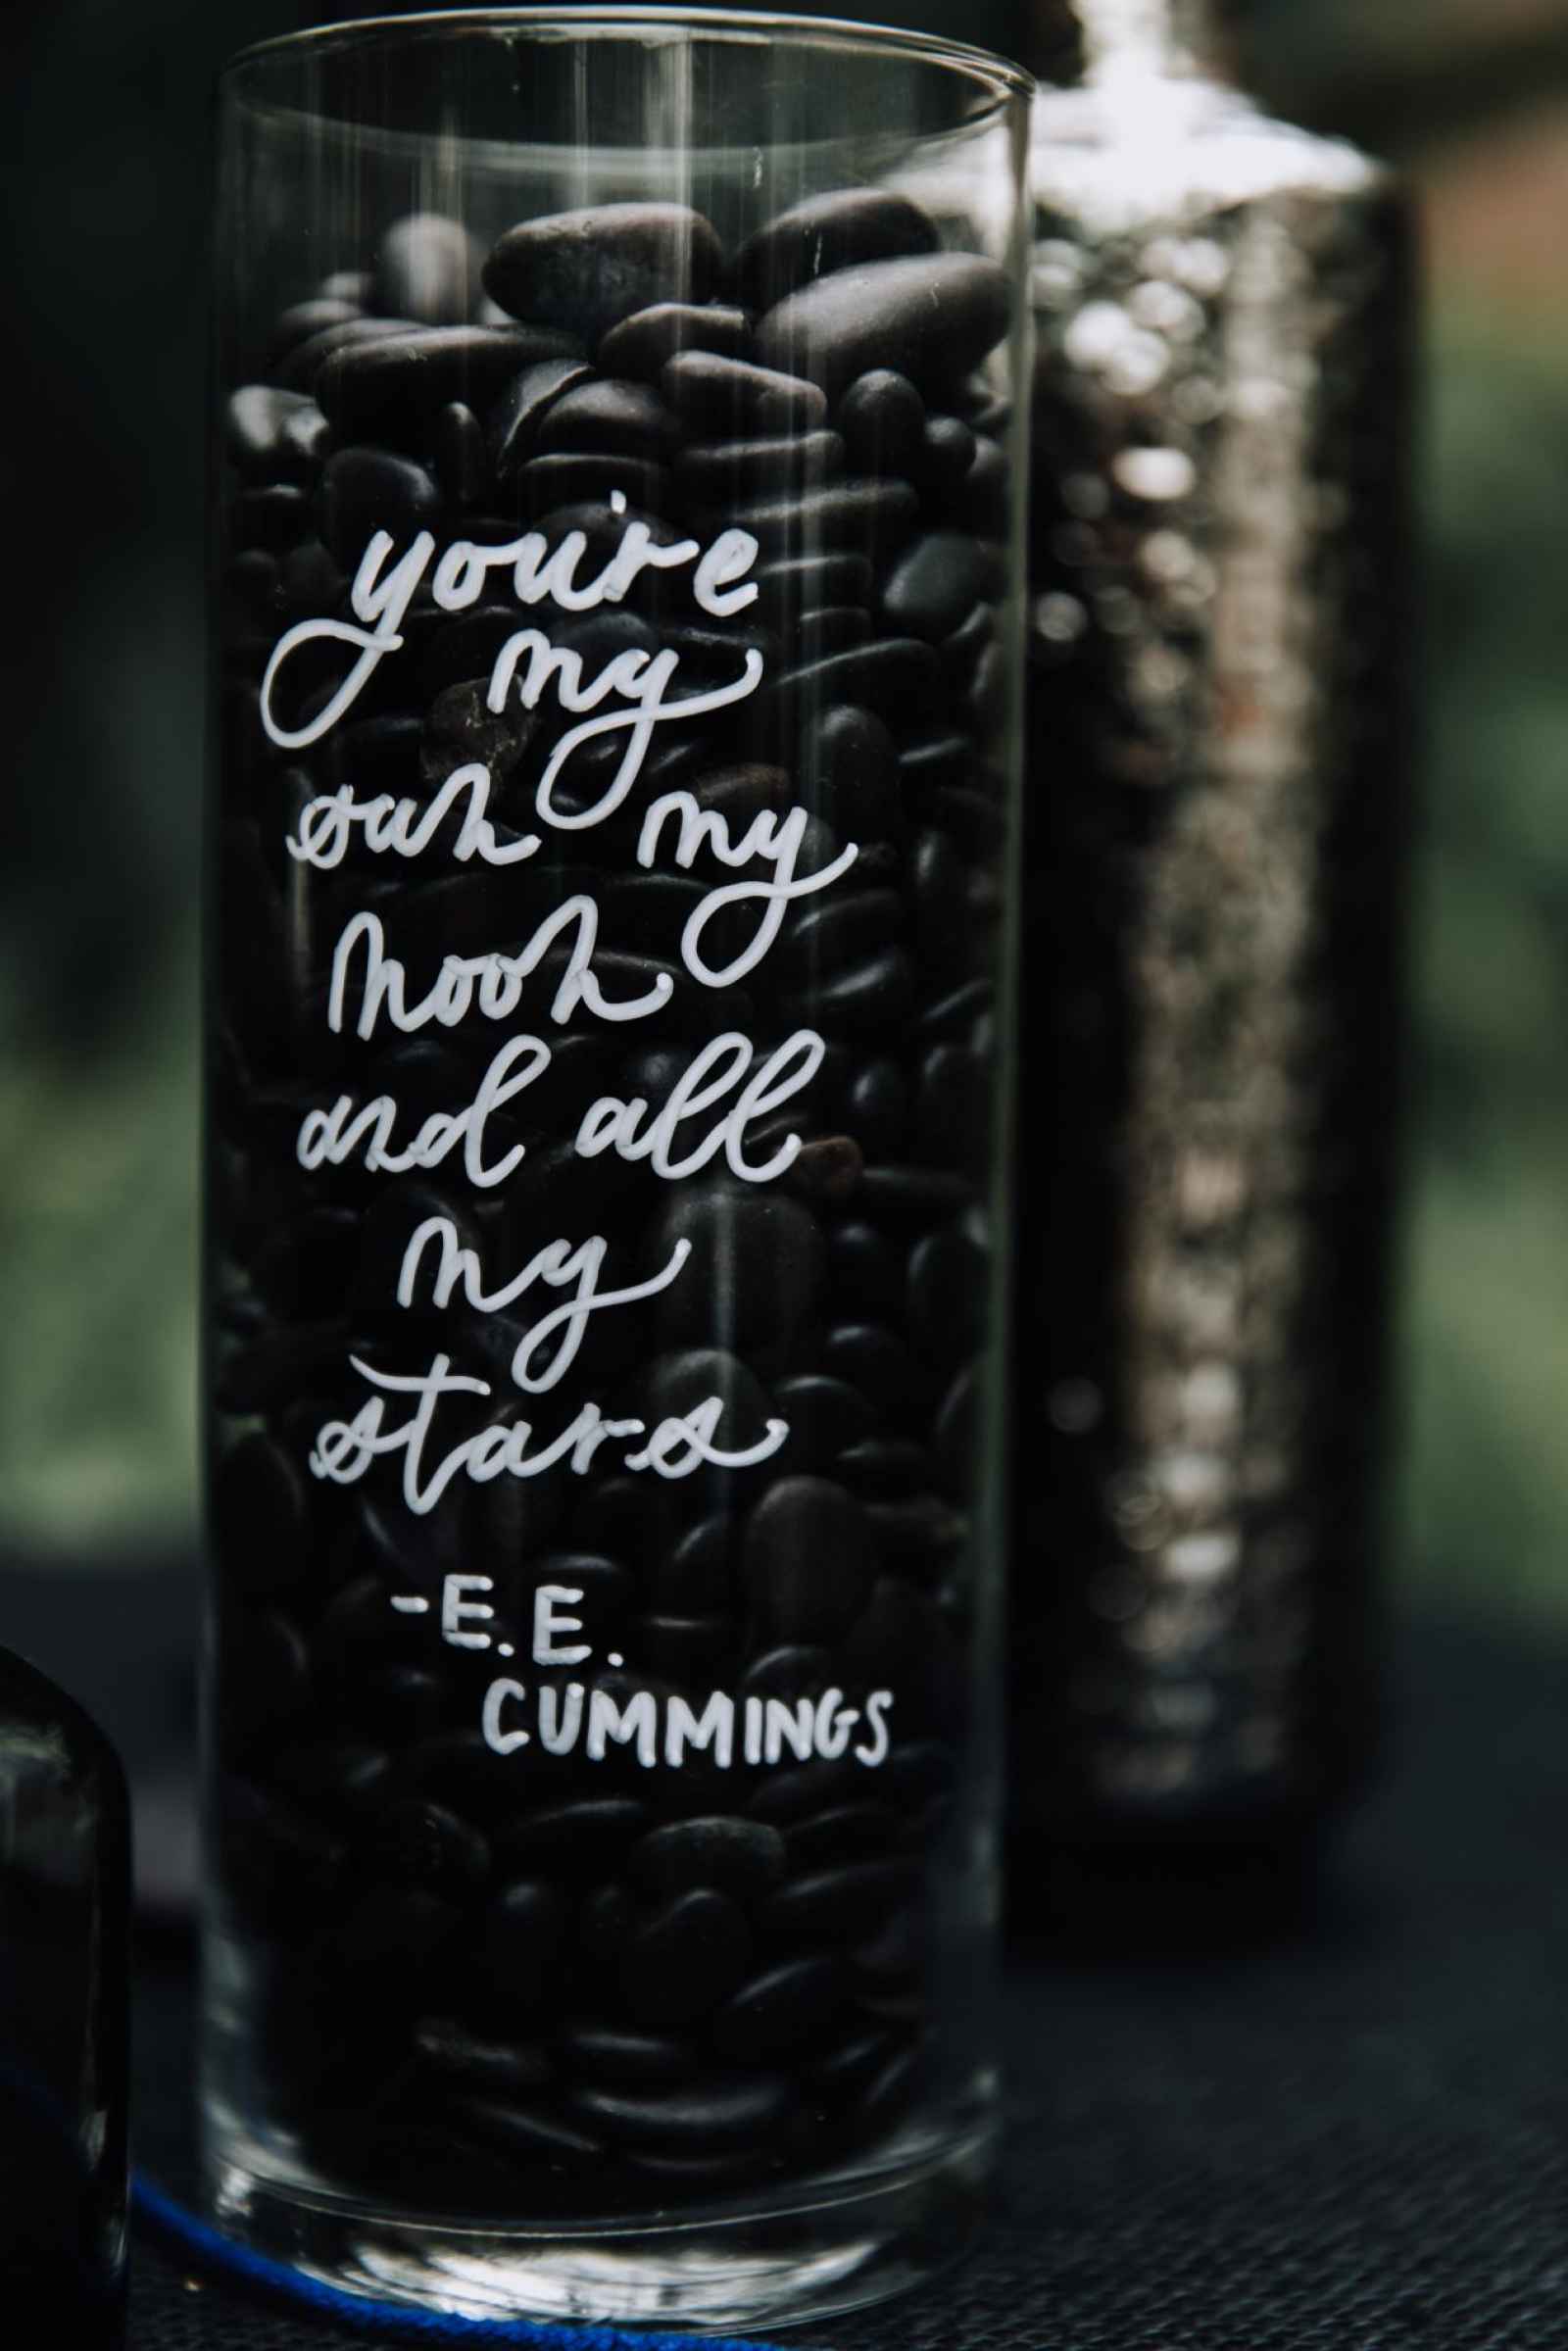 you're
my
sun my
moon
and all
my
stars
-E.E.
CUMMINGS